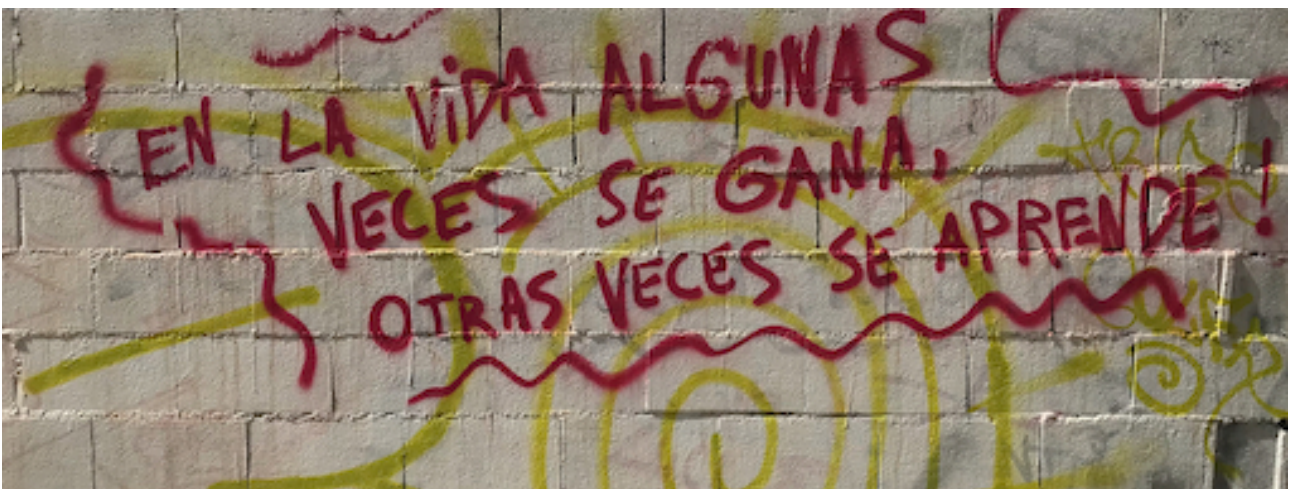 EN LA ViDA ALGUNAS
VECES SE GANA,
OTRAS VECES SE APRENDE!